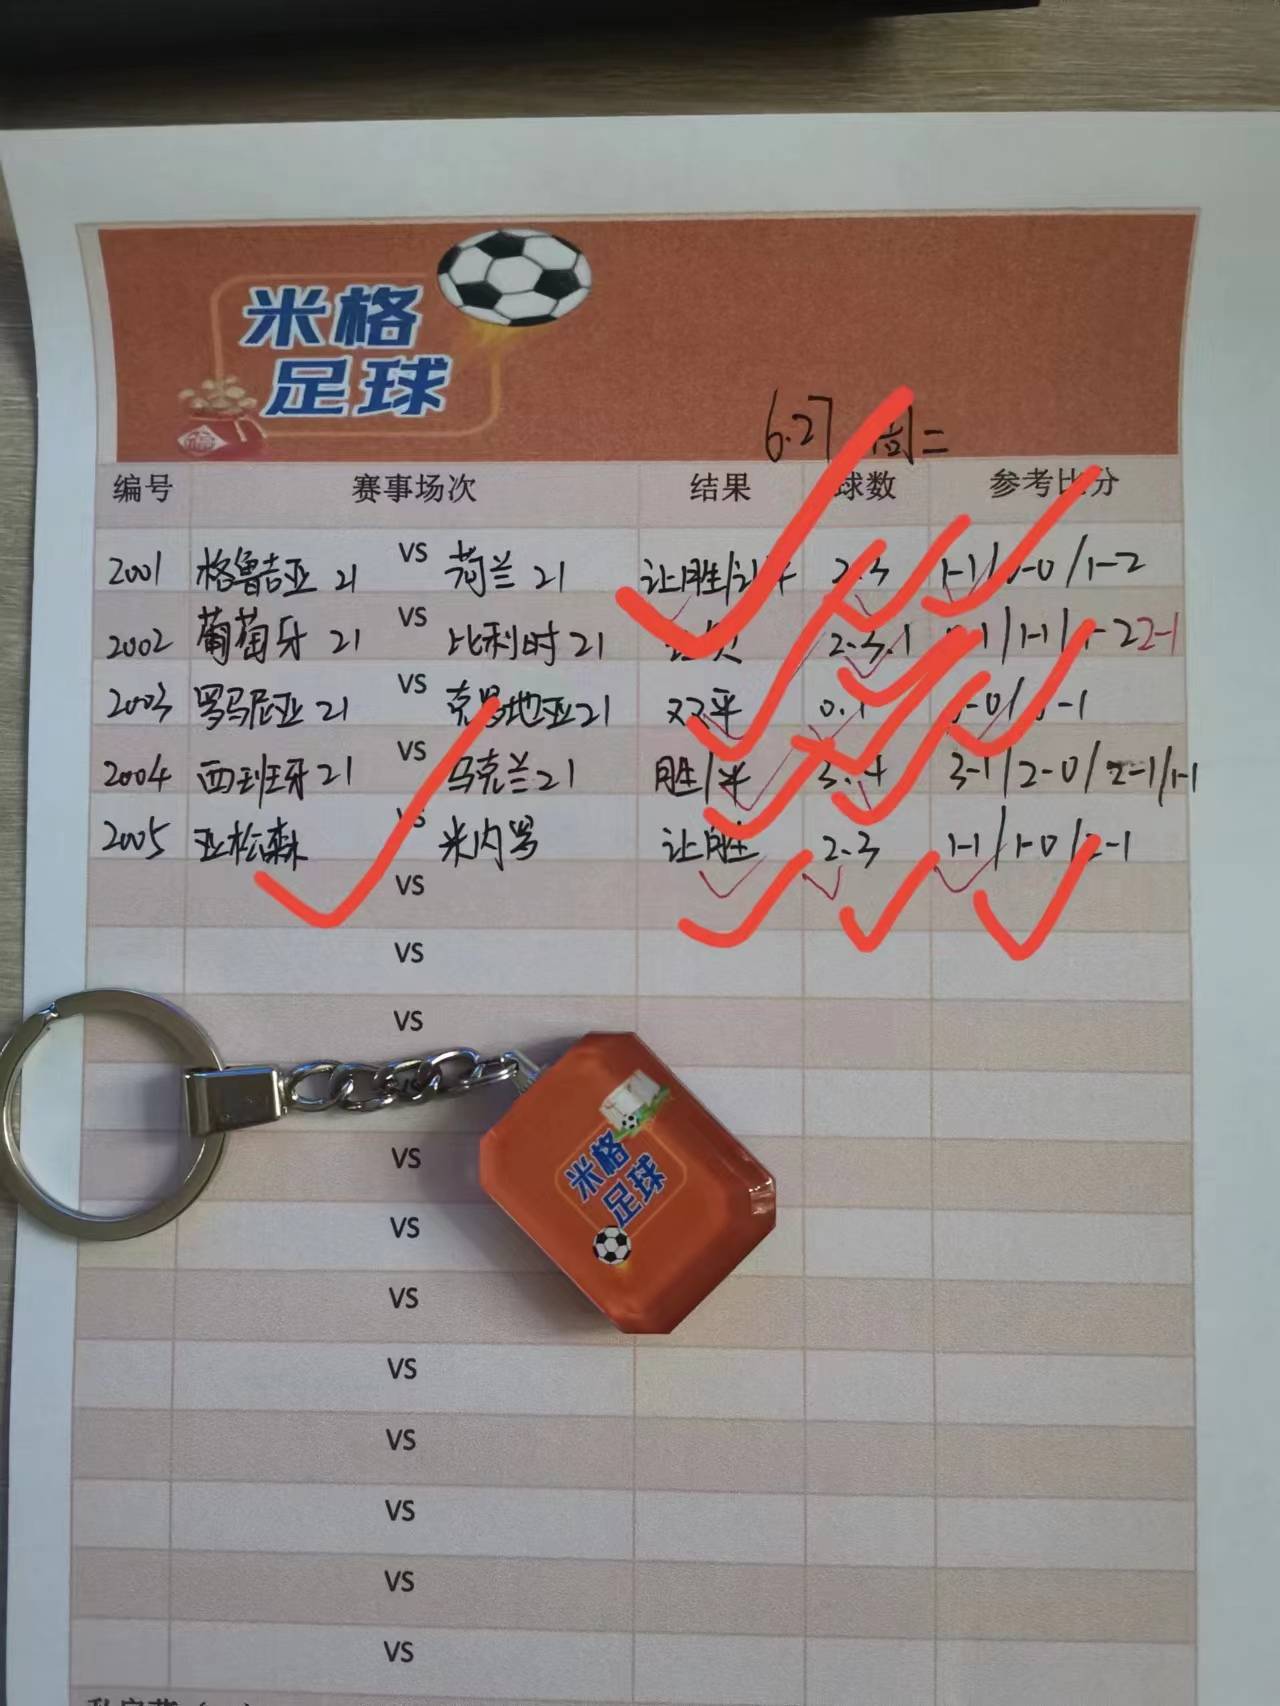 米格
足球
6.27 周二
编号 赛事场次 结果 球数 参考比分
2001 格鲁吉亚 21 VS 荷兰 21 让胜/ 2.3 1-1/ -0/1-2
2002 葡萄牙 21 VS 比利时 21 2.3.1 /1-1/ -2 2-1
2003 罗马尼亚 21 VS 克罗地亚 21 双平 0.1 -0/ -1
2004 西班牙 21 VS 乌克兰 21 胜/平 3.4 3-1/2-0/2-1/1-1
2005 亚松森 VS 米内罗 让胜 2.3 1-1/1-0/2-1
VS
VS
VS
VS
VS
VS
VS
VS
VS
VS
VS
VS
米格
足球